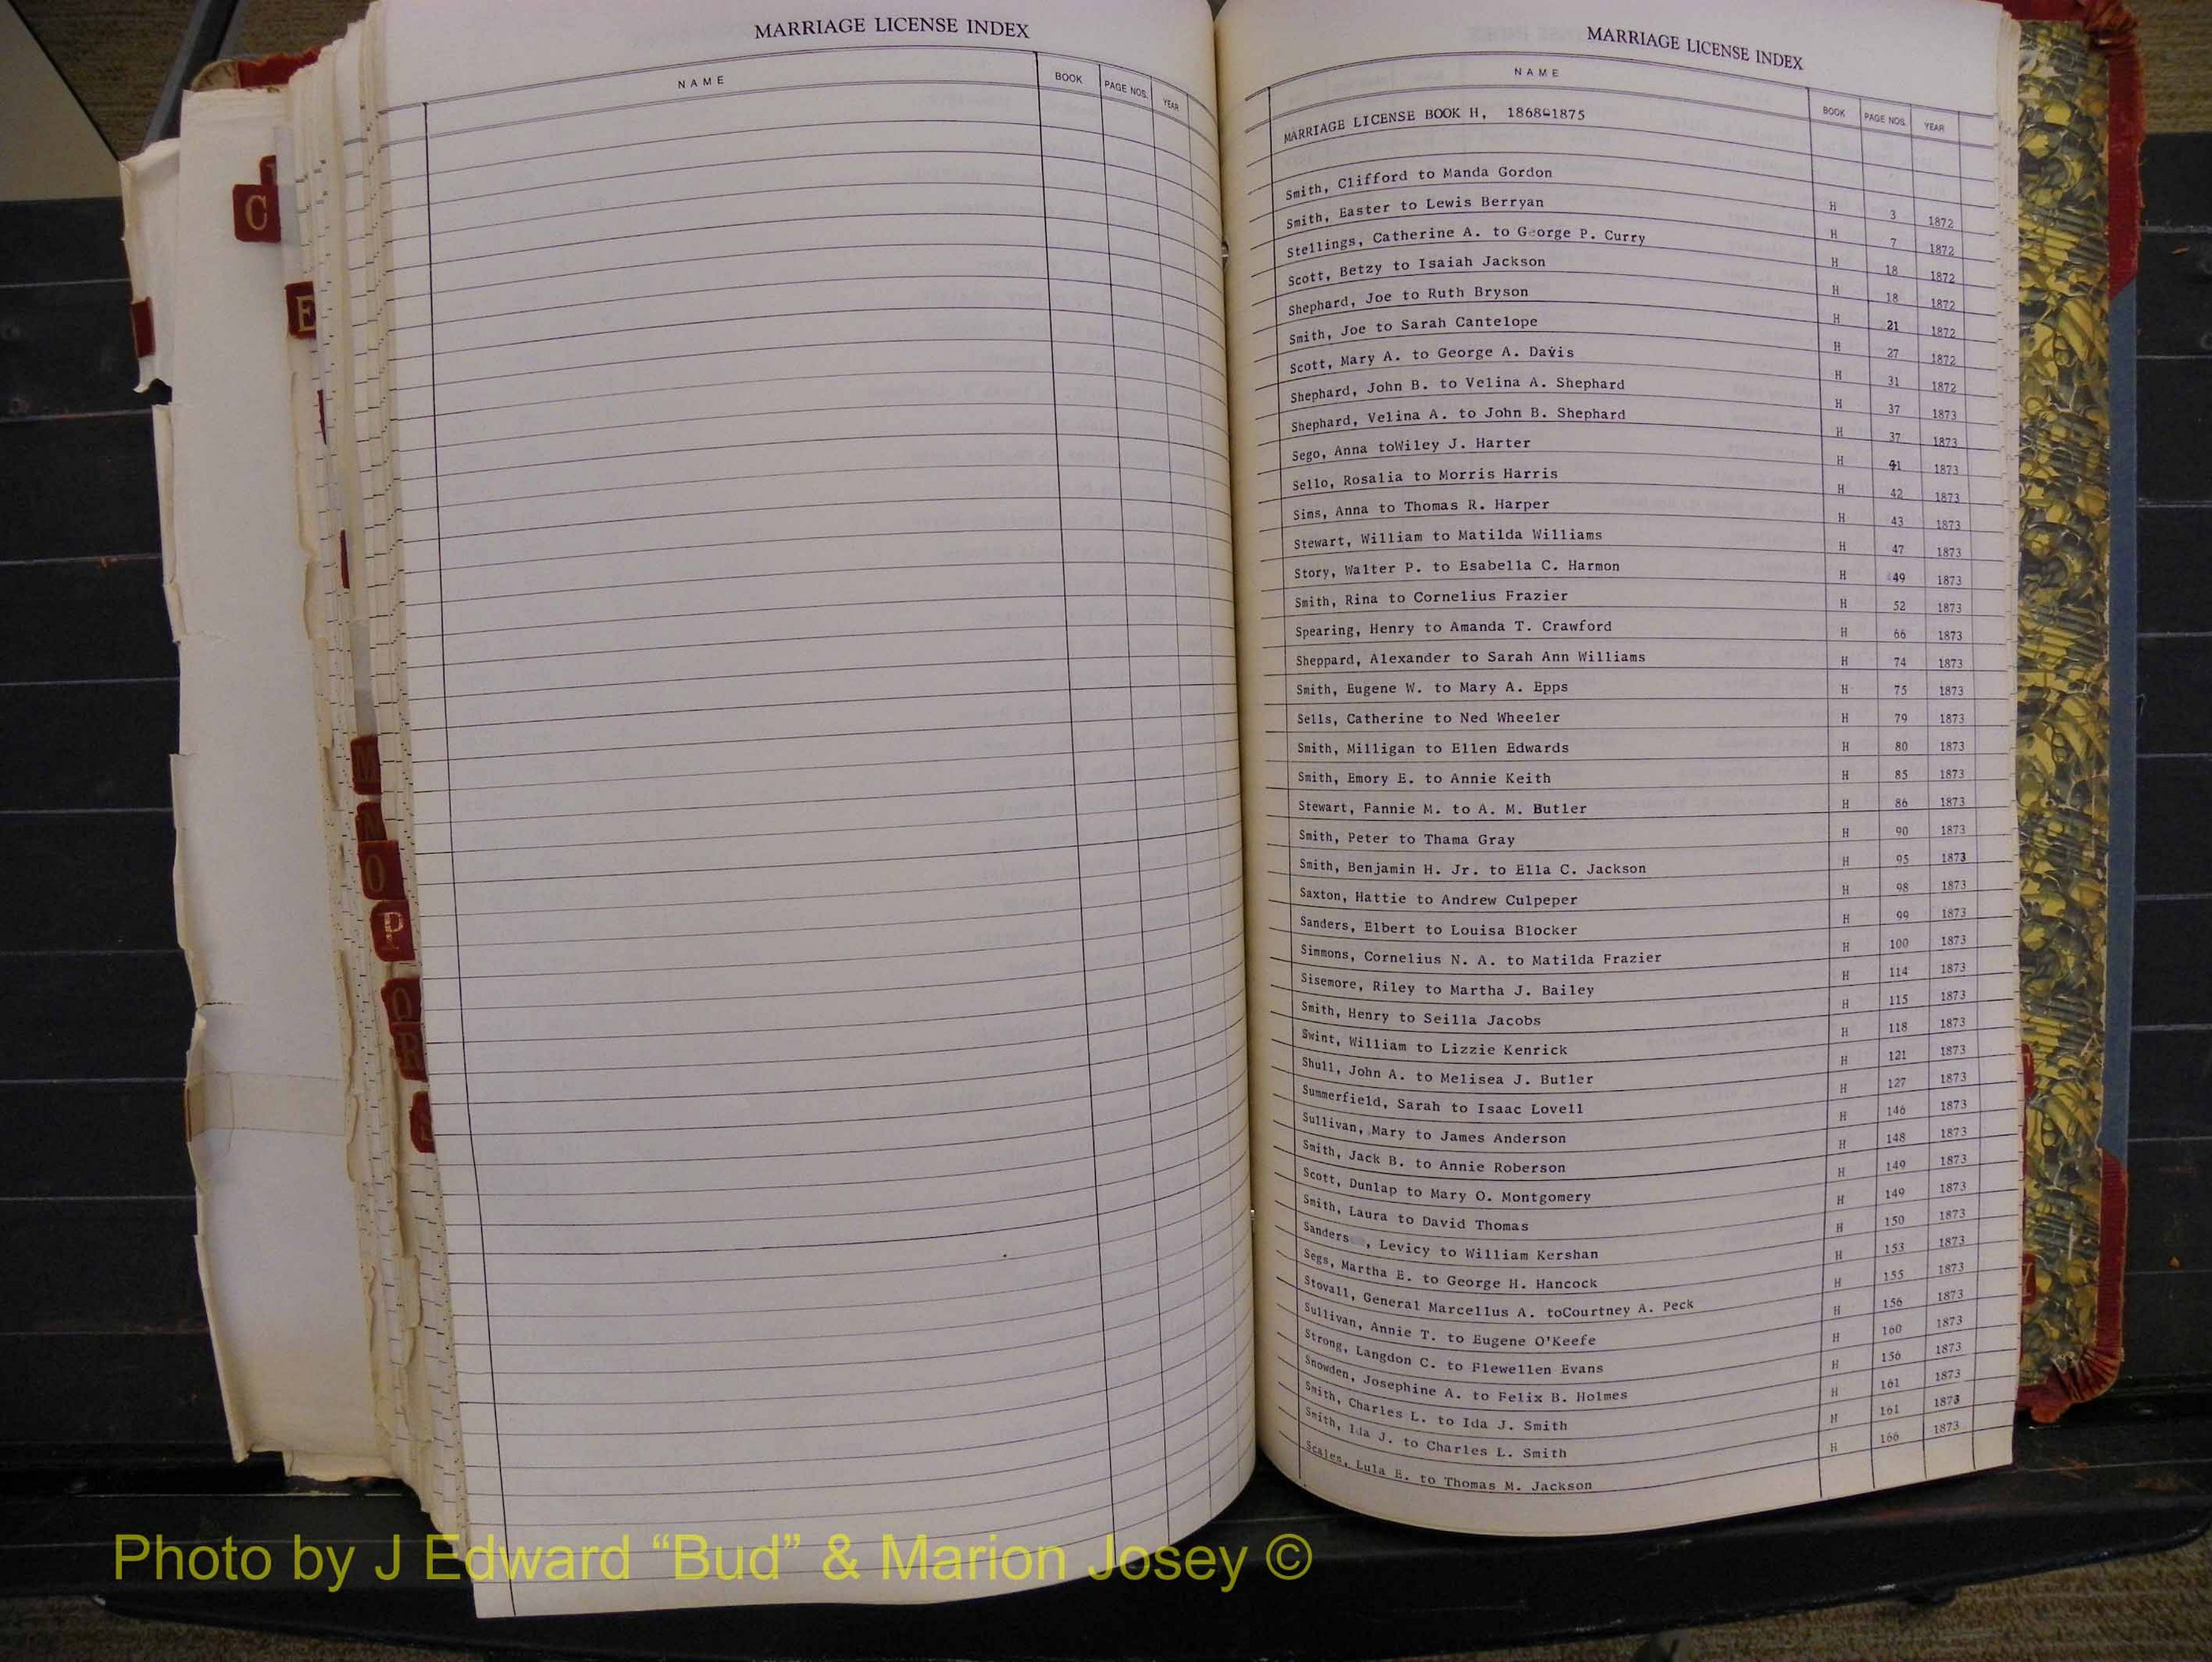 MARRIAGE LICENSE INDEX
NAME BOOK PAGE NOS. YEAR
MARRIAGE LICENSE INDEX
NAME BOOK PAGE NOS. YEAR
MARRIAGE LICENSE BOOK H, 1868-1875
Smith, Clifford to Manda Gordon H 3 1872
Smith, Easter to Lewis Berryan H 7 1872
Stellings, Catherine A. to George P. Curry H 18 1872
Scott, Betzy to Isaiah Jackson H 18 1872
Shephard, Joe to Ruth Bryson H 21 1872
Smith, Joe to Sarah Cantelope H 27 1872
Scott, Mary A. to George A. Davis H 31 1872
Shephard, John B. to Velina A. Shephard H 37 1873
Shephard, Velina A. to John B. Shephard H 37 1873
Sego, Anna toWiley J. Harter H 41 1873
Sello, Rosalia to Morris Harris H 42 1873
Sims, Anna to Thomas R. Harper H 43 1873
Stewart, William to Matilda Williams H 47 1873
Story, Walter P. to Esabella C. Harmon H 49 1873
Smith, Rina to Cornelius Frazier H 52 1873
Spearing, Henry to Amanda T. Crawford H 66 1873
Sheppard, Alexander to Sarah Ann Williams H 74 1873
Smith, Eugene W. to Mary A. Epps H 75 1873
Sells, Catherine to Ned Wheeler H 79 1873
Smith, Milligan to Ellen Edwards H 80 1873
Smith, Emory E. to Annie Keith H 85 1873
Stewart, Fannie M. to A. M. Butler H 86 1873
Smith, Peter to Thama Gray H 90 1873
Smith, Benjamin H. Jr. to Ella C. Jackson H 95 1873
Saxton, Hattie to Andrew Culpeper H 98 1873
Sanders, Elbert to Louisa Blocker H 99 1873
Simmons, Cornelius N. A. to Matilda Frazier H 100 1873
Sisemore, Riley to Martha J. Bailey H 114 1873
Smith, Henry to Seilla Jacobs H 115 1873
Swint, William to Lizzie Kenrick H 118 1873
Shull, John A. to Melisea J. Butler H 121 1873
Summerfield, Sarah to Isaac Lovell H 127 1873
Sullivan, Mary to James Anderson H 146 1873
Smith, Jack B. to Annie Roberson H 148 1873
Scott, Dunlap to Mary O. Montgomery H 149 1873
Smith, Laura to David Thomas H 149 1873
Sanders , Levicy to William Kershan H 150 1873
Segs, Martha E. to George H. Hancock H 153 1873
Stovall, General Marcellus A. toCourtney A. Peck H 155 1873
Sullivan, Annie T. to Eugene O'Keefe H 156 1873
Strong, Langdon C. to Flewellen Evans H 160 1873
Snowden, Josephine A. to Felix B. Holmes H 156 1873
Smith, Charles L. to Ida J. Smith H 161 1873
Smith, Ida J. to Charles L. Smith H 161 1873
Scales, Lula E. to Thomas M. Jackson H 166 1873
C
E
M
N
O
P
Q
R
Photo by J Edward “Bud” & Marion Josey ©